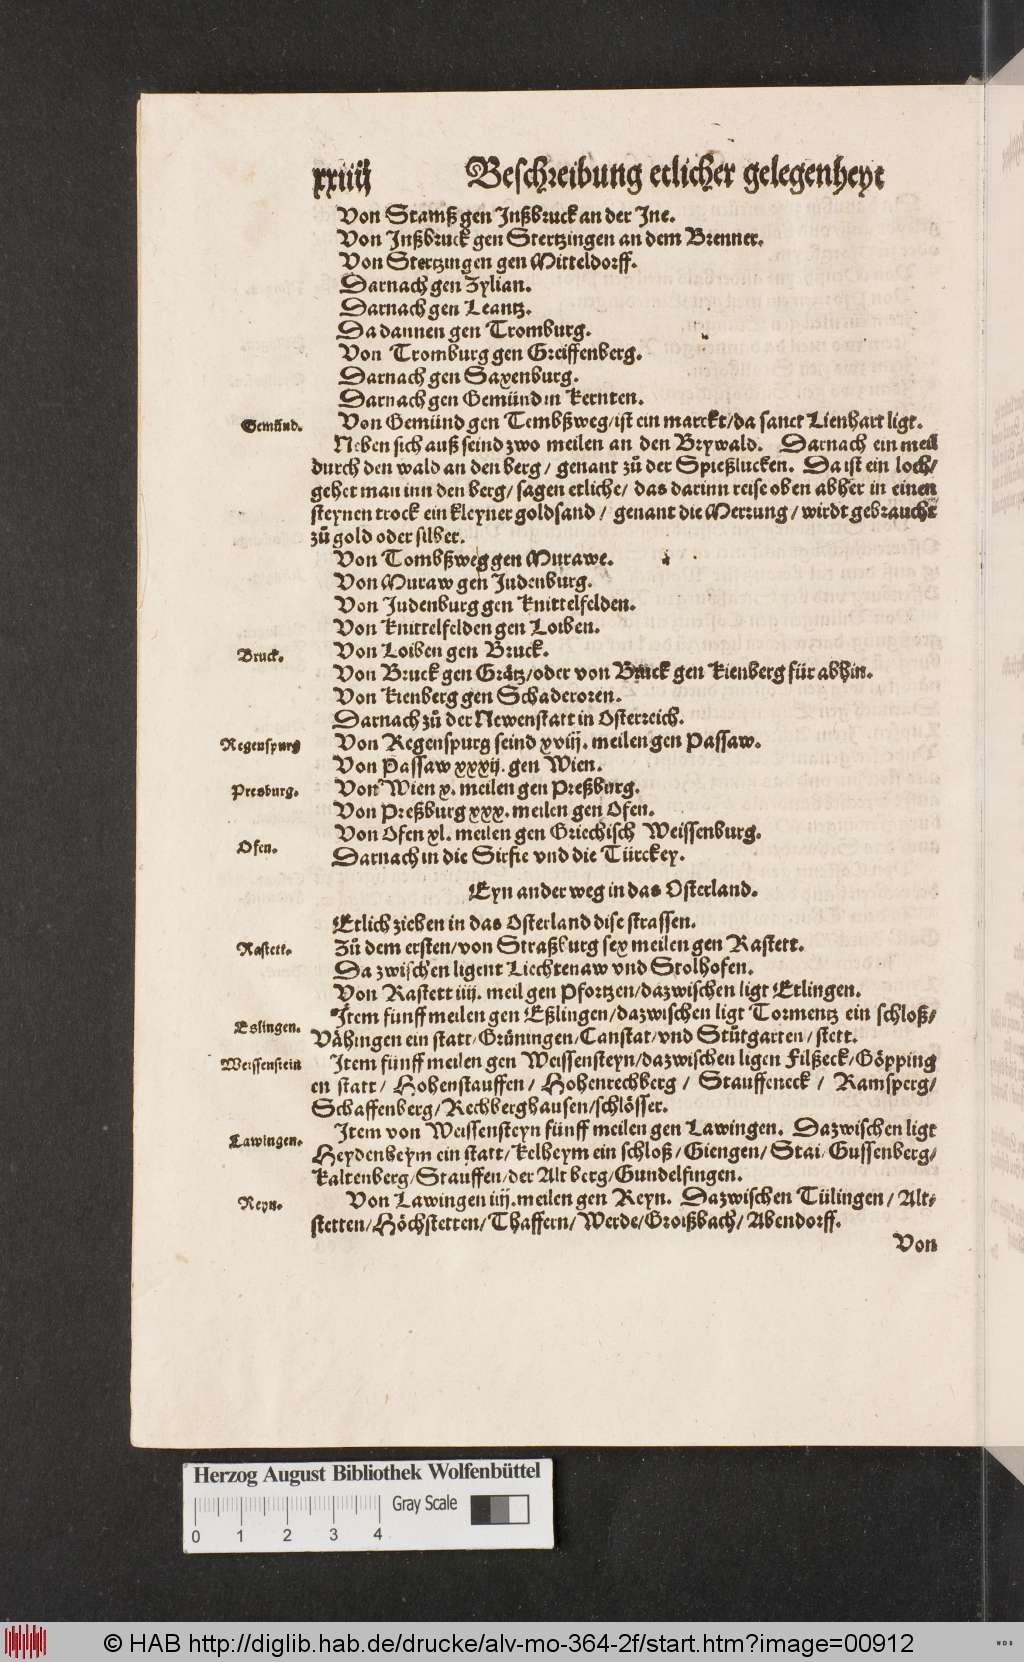 xxiiij Beschreibung etlicher gelegenheyt
Von Stamß gen Jnßbruck an der Jne.
Von Jnßbruck gen Stertzingen an dem Brenner.
Von Stertzingen gen Mitteldorff.
Darnach gen Zylian.
Darnach gen Leantz.
Da dannen gen Tromburg.
Von Tromburg gen Greiffenberg.
Darnach gen Saxenburg.
Darnach gen Gemünd in Kernten.
Gemünd. Von Gemünd gen Tembßweg/ist ein marckt/da sanct Lienhart ligt.
Neben sich auß seind zwo meilen an den Brywald. Darnach ein meil
durch den wald an den berg/ genant zů der Spießlucken. Da ist ein loch/
gehet man inn den berg/ sagen etliche/ das darinn reise oben abher in einen
steynen trock ein kleyner goldsand/ genant die Merrung/ wirdt gebraucht
zů gold oder silber.
Von Tombßweg gen Murawe.
Von Muraw gen Judenburg.
Von Judenburg gen Knittelfelden.
Von Knittelfelden gen Loiben.
Bruck. Von Loiben gen Bruck.
Von Bruck gen Grätz/oder von Bruck gen Kienberg für abhin.
Von Kienberg gen Schaderoren.
Darnach zů der Newenstatt in Osterreich.
Regenspurg Von Regenspurg seind xviij. meilen gen Passaw.
Von Passaw xxxij. gen Wien.
Presburg. Von Wien x. meilen gen Preßburg.
Von Preßburg xxx. meilen gen Ofen.
Ofen. Von Ofen xl. meilen gen Griechisch Weissenburg.
Darnach in die Sirfie vnd die Türckey.
Eyn ander weg in das Osterland.
Etlich ziehen in das Osterland dise strassen.
Rastett. Zů dem ersten/von Straßburg sex meilen gen Rastett.
Da zwischen ligent Liechtenaw vnd Stolhofen.
Von Rastett iiij. meil gen Pfortzen/dazwischen ligt Etlingen.
Eslingen. Jtem funff meilen gen Eßlingen/dazwischen ligt Tormentz ein schloß/
Vähingen ein statt/Grüningen/Canstat/vnd Stůtgarten/stett.
Weissenstein Jtem fünff meilen gen Weissensteyn/dazwischen ligen Filßeck/Göpping
en statt/ Hohenstauffen/ Hohenrechberg/ Stauffeneck/ Ramsperg/
Schaffenberg/Rechberghausen/schlösser.
Lawingen. Jtem von Weissensteyn fünff meilen gen Lawingen. Dazwischen ligt
Heydenheym ein statt/ Kelheym ein schloß/Giengen/Stai/Gussenberg/
Kaltenberg/Stauffen/der Alt berg/Gundelfingen.
Reyn. Von Lawingen iiij. meilen gen Reyn. Dazwischen Tülingen/ Alt-
stetten/Höchstetten/Thaffern/Werde/Groißbach/Abendorff.
Von
Herzog August Bibliothek Wolfenbüttel
Gray Scale
0 1 2 3 4
© HAB http://diglib.hab.de/drucke/alv-mo-364-2f/start.htm?image=00912